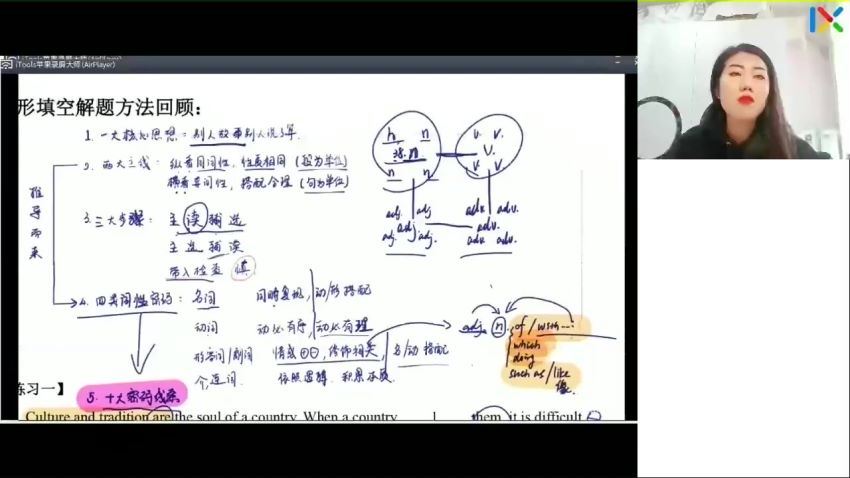 iTools苹果录屏大师(AirPlayer)
形填空解题方法回顾：
1. 一大核心思想：别人故事别人说了算.
2. 两大主线：纵看同词性，性质相同（段为单位）
横看异词性，搭配合理（句为单位）
推导而来
3. 三大步骤：主读辅选
主选辅读
带入检查 慎
4. 四类词性密码：名词 同畴复现，动/形搭配
动词 动必有序，动必有理
形容词/副词 情感⊕⊖，修饰相关，名/动搭配
介，连词 依照逻辑，积累本质.
5. 十大密码线索
n n
n
n n
v. v.
v.
v v
adj. adj
adj.
adj. adj.
adv. adv.
adv.
adv. adv.
adj. n. of / with ...
which
doing
such as / like
像
练习一】
Culture and tradition are the soul of a country. When a country 1 them, it is difficult